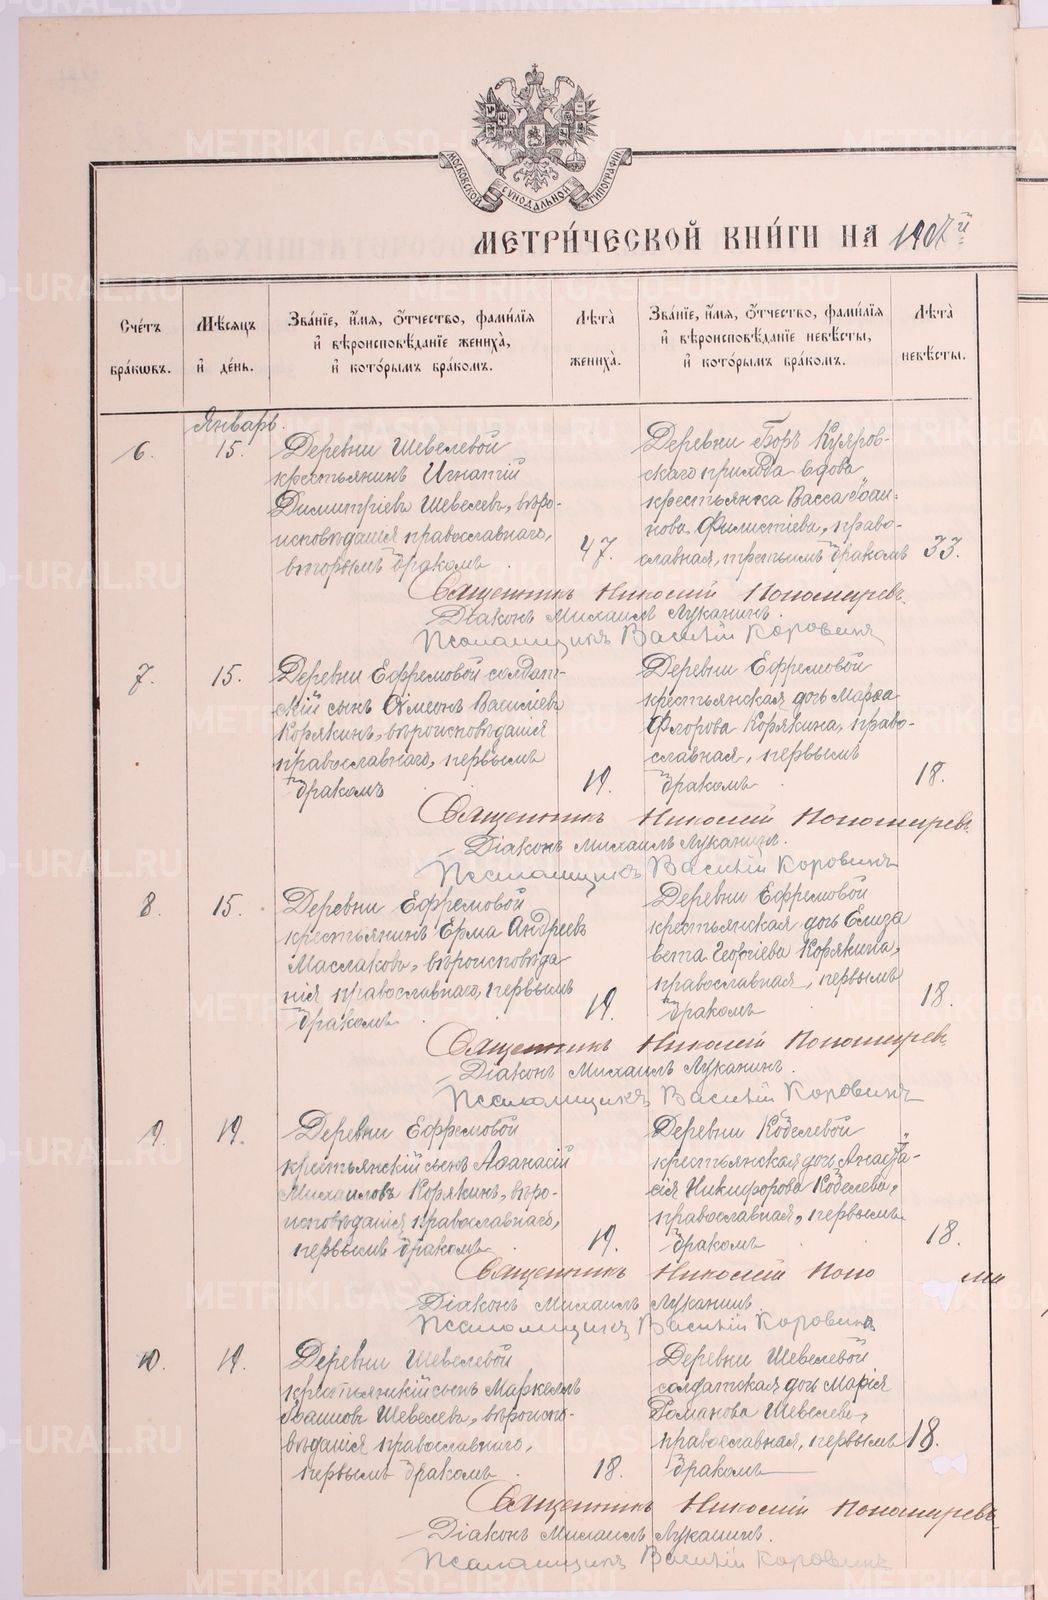 METRIKI.GASO-URAL.RU
МОСКОВСКОЙ СУНОДАЛЬНОЙ ТИПОГРАФІИ
МЕТРИ́ЧЕСКОЙ КНИ́ГИ НА 1907й
Сче́тъ бра́кωвъ.
Мѣ́сяцъ и҆ де́нь.
Зва́нїе, и҆́мя, ѻ҆́тчество, фами́лїя и҆ вѣроисповѣ́данїе жениха̀, и҆ кото́рымъ бра́комъ.
Лѣ́та̀ жениха̀.
Зва́нїе, и҆́мя, ѻ҆́тчество, фами́лїя и҆ вѣроисповѣ́данїе невѣ́сты, и҆ кото́рымъ бра́комъ.
Лѣ́та̀ невѣ́сты.
Январь.
6.
15.
Деревни Шевелевой
крестьянинъ Игнатій
Димитріевъ Шевелевъ, вѣро-
исповѣданія православнаго,
вторымъ бракомъ
47.
Деревни Боръ Куяров-
скаго прихода вдова
крестьянка Васса Іоан-
нова Филистіева, право-
славная, третьимъ бракомъ
33.
Священникъ Николай Пономаревъ
Діаконъ Михаилъ Луканинъ.
Псаломщикъ Василій Коровинъ
7.
15.
Деревни Ефремовой солдат-
скій сынъ Симеонъ Василіевъ
Корякинъ, вѣроисповѣданія
православнаго, первымъ
бракомъ
19.
Деревни Ефремовой
крестьянская дочь Марѳа
Флорова Корякина, право-
славная, первымъ
бракомъ
18.
Священникъ Николай Пономаревъ
Діаконъ Михаилъ Луканинъ.
Псаломщикъ Василій Коровинъ
8.
15.
Деревни Ефремовой
крестьянинъ Ерма Андреевъ
Маслаковъ, вѣроисповѣда
нія православнаго, первымъ
бракомъ
19.
Деревни Ефремовой
крестьянская дочь Елиза
вета Георгіева Корякина,
православная, первымъ
бракомъ
18.
Священникъ Николай Пономарев
Діаконъ Михаилъ Луканинъ.
Псаломщикъ Василій Коровинъ
9.
19.
Деревни Ефремовой
крестьянскій сынъ Аѳанасій
Михаиловъ Корякинъ, вѣро-
исповѣданія православнаго,
первымъ бракомъ
19.
Деревни Кобелевой
крестьянская дочь Анаста-
сія Никифорова Кобелева,
православная, первымъ
бракомъ
18.
Священникъ Николай Поно
Діаконъ Михаилъ Луканинъ.
Псаломщикъ Василій Коровинъ
10.
19.
Деревни Шевелевой
крестьянскій сынъ Маркеллъ
Іоанновъ Шевелевъ, вѣроиспо-
вѣданія православнаго,
первымъ бракомъ
18.
Деревни Шевелевой
солдатская дочь Марія
Романова Шевелева,
православная, первымъ
бракомъ
18.
Священникъ Николай Пономаревъ
Діаконъ Михаилъ Луканинъ.
Псаломщикъ Василій Коровинъ